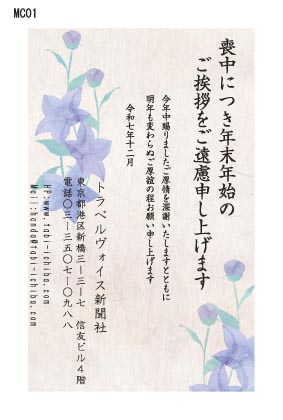 MC01
喪中につき年末年始の
ご挨拶をご遠慮申し上げます
今年中賜りましたご厚情を深謝いたしますとともに
明年も変わらぬご厚誼の程お願い申し上げます
令和七年十二月
トラベルヴォイス新聞社
東京都港区新橋三-三-七 信友ビル4階
電話〇三-三五〇七-〇九八八
HP:www.tabi-ichiba.com
Mail:honda@tabi-ichiba.com